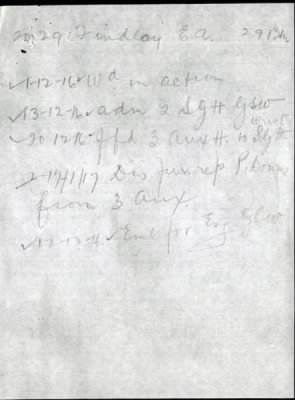 2029 Findlay E.A. 29 Bn
✓1-12-16 ✓Wd in action
✓13-12-16 ✓adm 2 SgH GSW wrist
✓20 12 16 3 Aux H. 2 SgH
2-17/1/17 Dis fur rep
from 3 Aux.
✓12-12-16 ✓Emb for Eng GSW